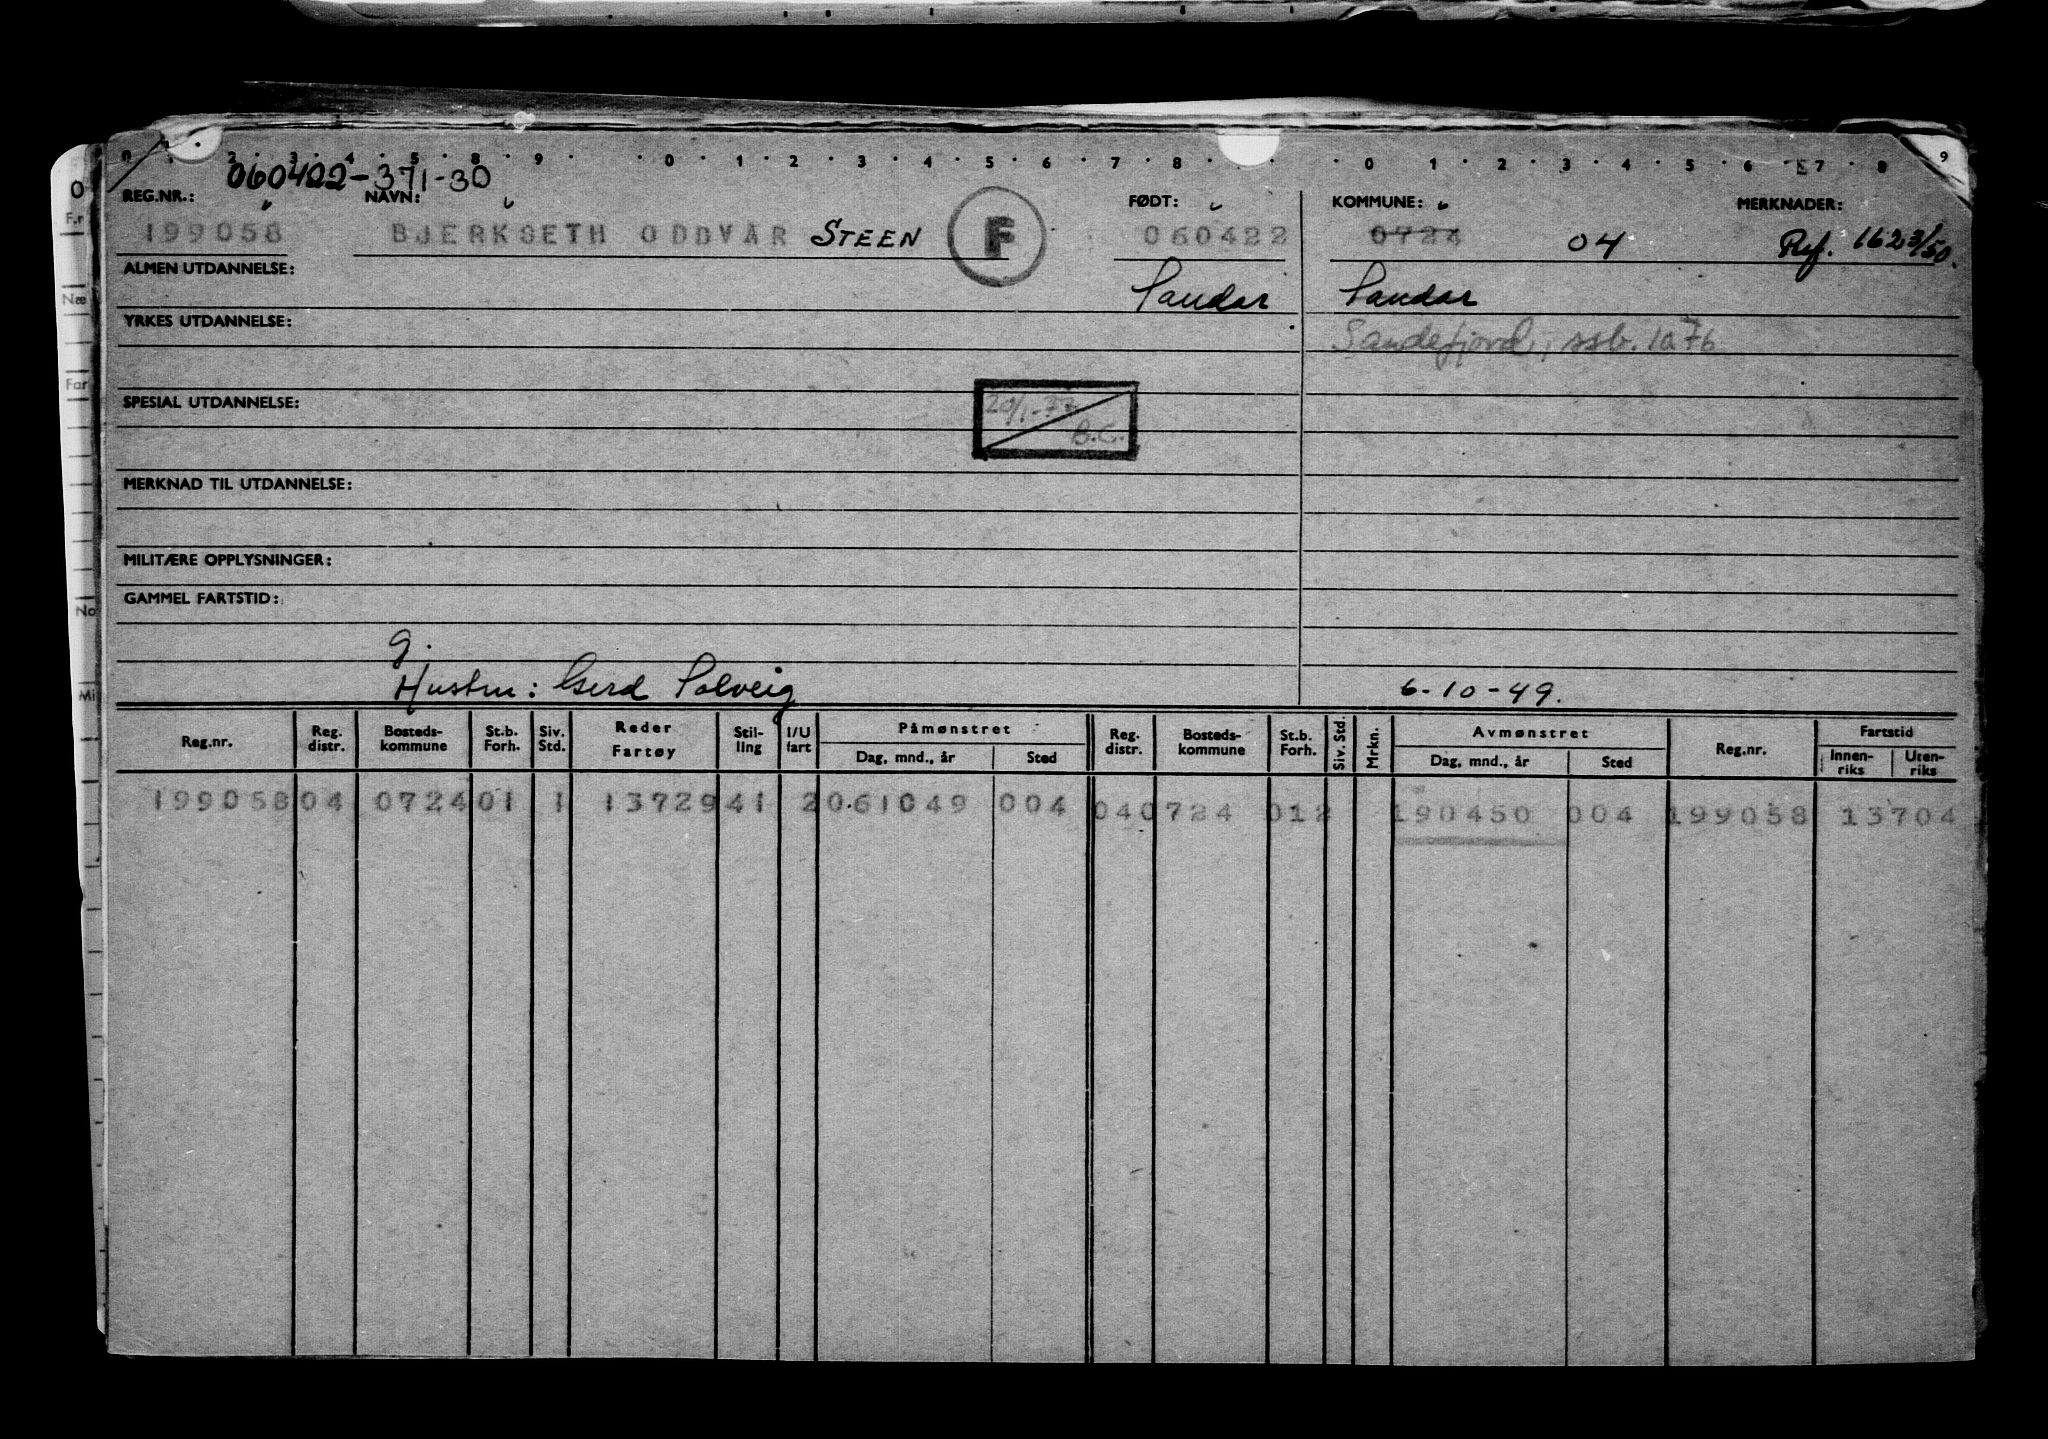 0 1 2 3 4 5 8 9 0 1 2 3 4 5 6 7 8 0 1 2 3 4 5 6 7 8 9
060422-371-30
REG.NR.: NAVN: FØDT: KOMMUNE: MERKNADER:
199058 BJERKSETH ODDVAR STEEN F 060422 0724 04 Ref. 1623/50.
ALMEN UTDANNELSE: Sandar Sandar
YRKES UTDANNELSE: Sandefjord, ssb. 1a 76
SPESIAL UTDANNELSE: 20/1-77 B.C.
MERKNAD TIL UTDANNELSE:
MILITÆRE OPPLYSNINGER:
GAMMEL FARTSTID:
g.
Hustru: Gerd Solveig 6-10-49.
Reg.nr. Reg. distr. Bosteds-kommune St.b. Forh. Siv. Std. Reder Fartøy Stil-ling I/U fart Påmønstret Dag, mnd., år Sted Reg. distr. Bosteds-kommune St.b. Forh. Siv. Std. Mrkn. Avmønstret Dag, mnd., år Sted Reg.nr. Fartstid Innen-riks Uten-riks
199058 04 0724 01 1 13729 41 2 061049 004 04 0724 01 2 190450 004 199058 13704
O
F.r
Næ
Far
No
Mi